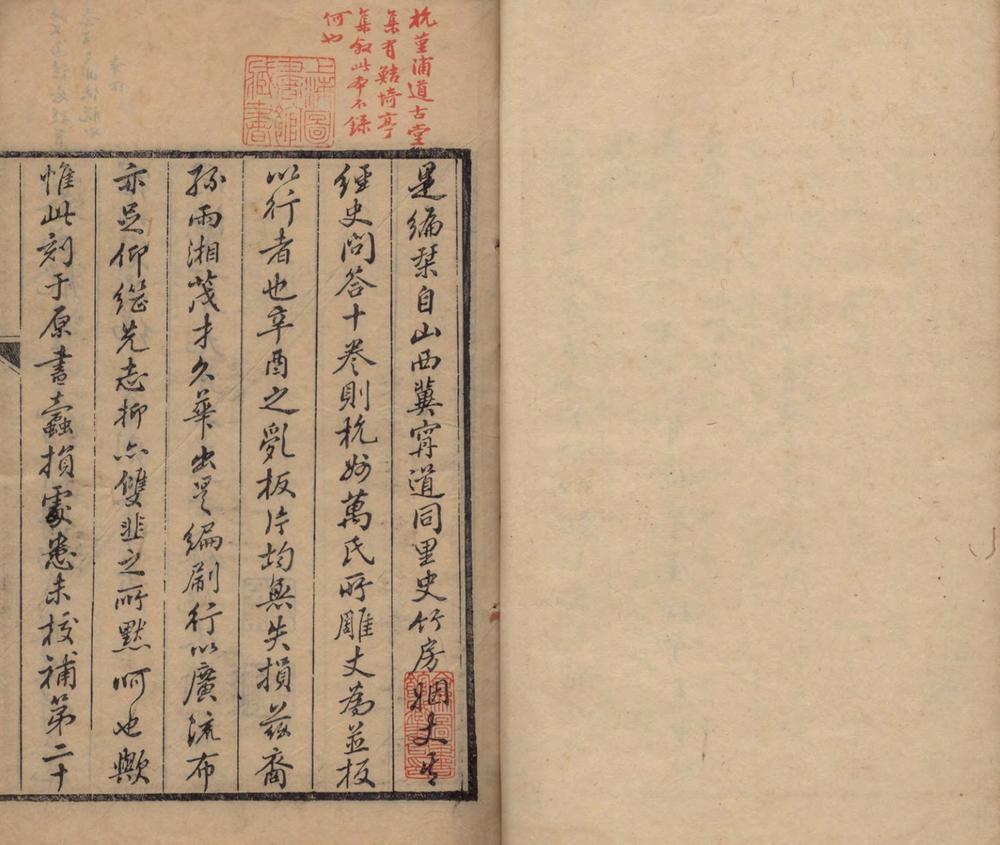 杭堇浦道古堂
集有鲒埼亭
集敘此本不錄
何也
上海圖
書館
藏書
是編栞自山西冀寧道同里史竹房姻丈其
經史問答十卷則杭州萬氏所雕丈為並板
以行者也辛酉之亂板片均無失損茲裔
孫雨湘茂才久華出是編刷行以廣流布
亦足仰繼先志抑亦雙韭之所默呵也歟
惟此刻于原書蠹損處悉未校補第二十